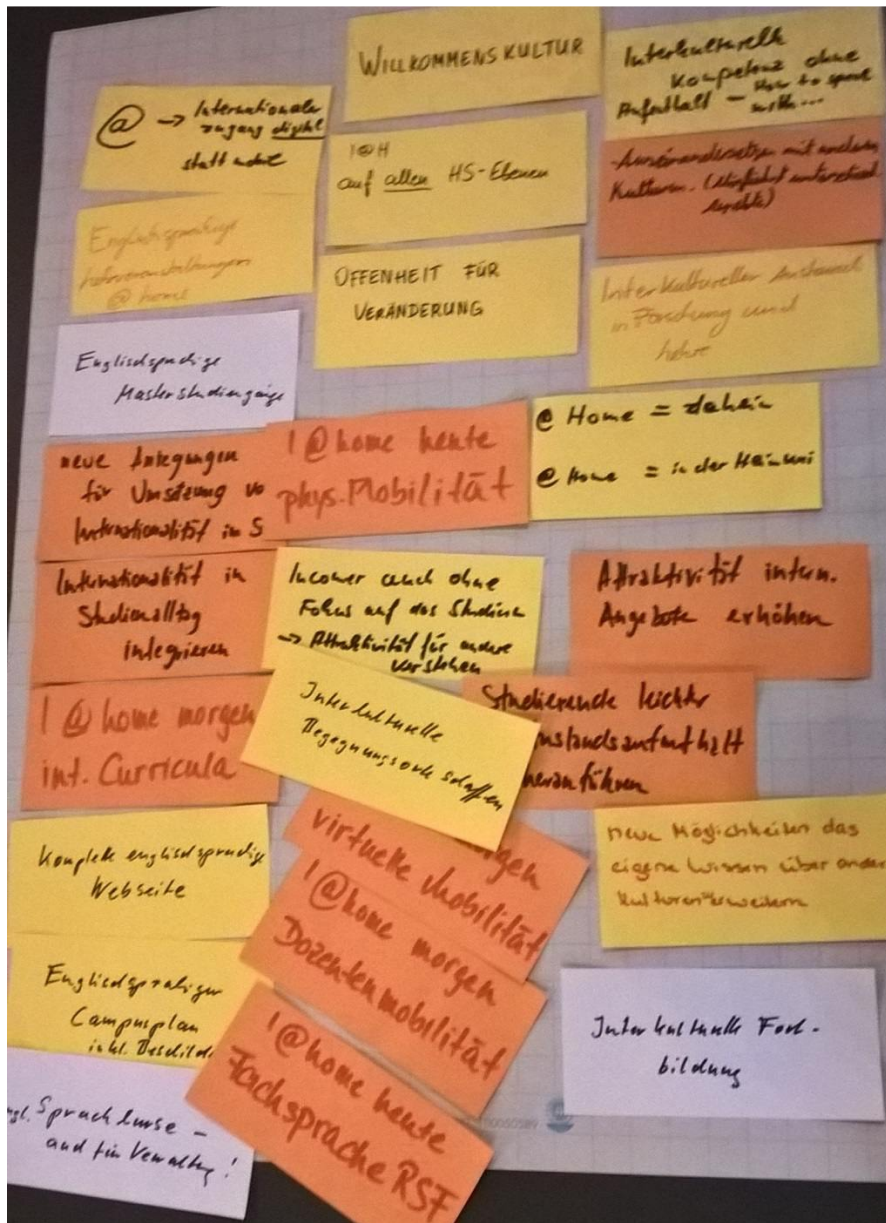 WILLKOMMENSKULTUR
Interkulturelle
Kompetenz ohne
Aufenthalt – How to speak
with...
@ → Internationaler
zugang digital
statt
I@H
auf allen HS-Ebenen
-Auseinandersetzen mit anderen
Kulturen.
Englischsprachige
Lehrveranstaltungen
@ home
OFFENHEIT FÜR
VERÄNDERUNG
Interkultureller Austausch
in Forschung und
Lehre
Englischsprachige
Masterstudiengänge
neue Anregungen
für Umsetzung vo
Internationalität im S
I @home heute
phys. Mobilität
@ Home = daheim
@ Home = in der Heimuni
Internationalität in
Studienalltag
integrieren
Incomer auch ohne
Fokus auf das Studium
→ Attraktivität für andere
verstehen
Attraktivität intern.
Angebote erhöhen
I @ home morgen
int. Curricula
Interkulturelle
Begegnungsorte schaffen
Studierende leichter
uslandsaufenthalt
heranführen
Komplett englischsprachige
Webseite
virtuelle Mobilität
neue Möglichkeiten das
eigene Wissen über ander
Kulturen erweitern
I @home morgen
Dozentenmobilität
Englischsprachiger
Campusplan
inkl. Beschild
Interkulturelle Fort-
bildung
I @home heute
Fachsprache RSF
ngl. Sprachkurse –
auch für Verwaltg!